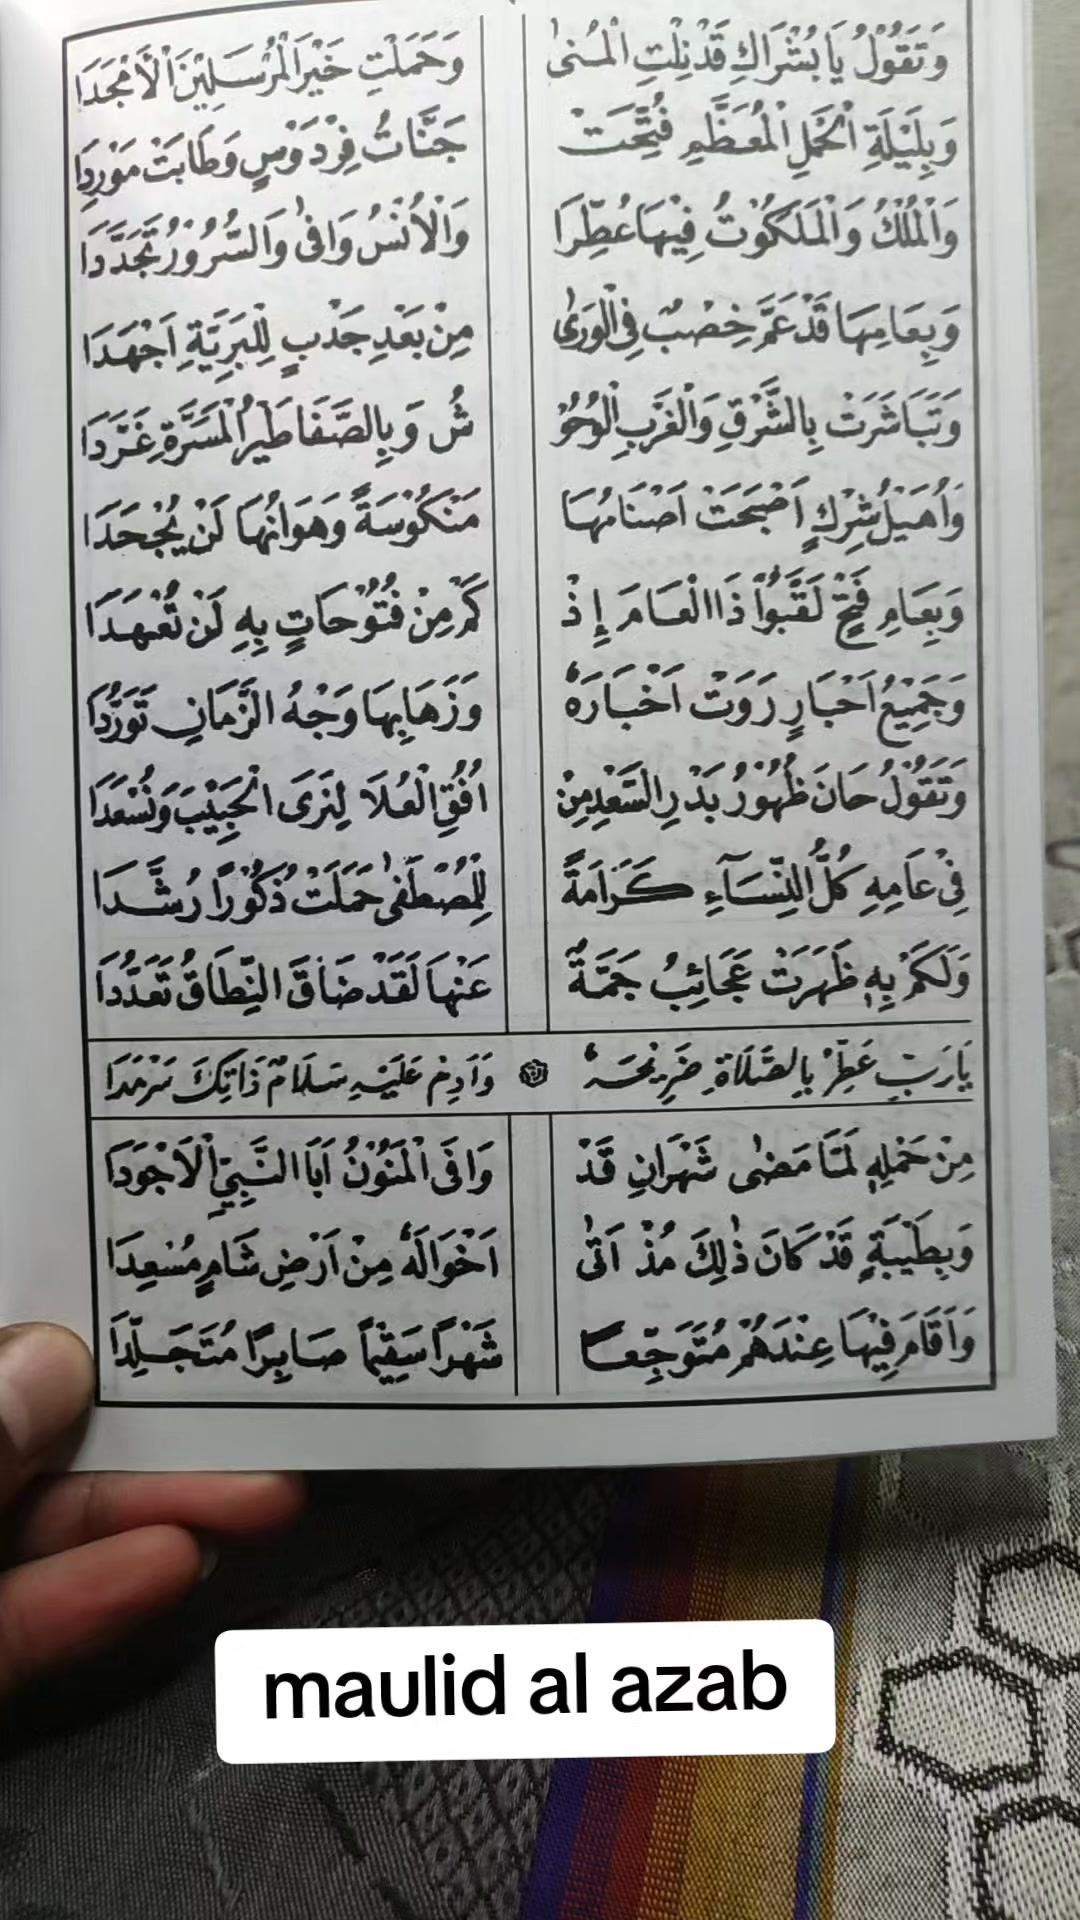 وَتَقُوْلُ يَا بُشْرَاكِ قَدْ نِلْتِ الْمُنٰى وَحَمَلْتِ خَيْرَ الْمُرْسَلِيْنَ الْأَمْجَدَا
وَبِلَيْلَةِ الْحَمْلِ الْمُعَظَّمِ فُتِّحَتْ جَنَّاتُ فِرْدَوْسٍ وَطَابَتْ مَوْرِدَا
وَالْمُلْكُ وَالْمَلَكُوْتُ فِيْهَا عُطِّرَا وَالْأُنْسُ وَافٰى وَالسُّرُوْرُ تَجَدَّدَا
وَبِعَامِهَا قَدْ عَمَّ خِصْبٌ فِى الْوَرٰى مِنْ بَعْدِ جَدْبٍ لِلْبَرِيَّةِ اَجْهَدَا
وَتَبَاشَرَتْ بِالشَّرْقِ وَالْغَرْبِ الْوُحُوْ شُ وَبِالصَّفَا طَيْرُ الْمَسَرَّةِ غَرَّدَا
وَاُهَيْلُ شِرْكٍ اَصْبَحَتْ اَصْنَامُهَا مَنْكُوْسَةً وَهَوَانُهَا لَنْ يُجْحَدَا
وَبِعَامِ فَتْحٍ لَقَّبُوْا ذَا الْعَامَ إِذْ كَمْ مِنْ فُتُوْحَاتٍ بِهِ لَنْ تُعْهَدَا
وَجَمِيْعُ اَحْبَارٍ رَوَتْ اَخْبَارَهُ وَزَهَا بِهَا وَجْهُ الزَّمَانِ تَوَرُّدَا
وَتَقُوْلُ حَانَ ظُهُوْرُ بَدْرِ السَّعْدِ مِنْ اُفُقِ الْعُلَا لِنَرَى الْحَبِيْبَ وَنُسْعَدَا
فِيْ عَامِهِ كُلُّ النِّسَآءِ كَرَامَةً لِلْمُصْطَفٰى حَمَلَتْ ذُكُوْرًا رُشَّدَا
وَلَكَمْ بِهِ ظَهَرَتْ عَجَائِبُ جَمَّةٌ عَنْهَا لَقَدْ ضَاقَ النِّطَاقُ تَعَدُّدَا
يَا رَبِّ عَطِّرْ بِالصَّلَاةِ ضَرِيْحَهُ وَاَدِمْ عَلَيْهِ سَلَامَ ذَاتِكَ سَرْمَدَا
مِنْ حَمْلِهِ لَمَّا مَضٰى شَهْرَانِ قَدْ وَافَى الْمَنُوْنُ اَبَا النَّبِيِّ الْاَجْوَدَا
وَبِطَيْبَةٍ قَدْ كَانَ ذٰلِكَ مُذْ اَتٰى اَخْوَالَهُ مِنْ اَرْضِ شَامٍ مُسْعِدَا
وَاَقَامَ فِيْهَا عِنْدَهُمْ مُتَوَجِّعًا شَهْرًا سَقِيْمًا صَابِرًا مُتَجَلِّدَا
maulid al azab